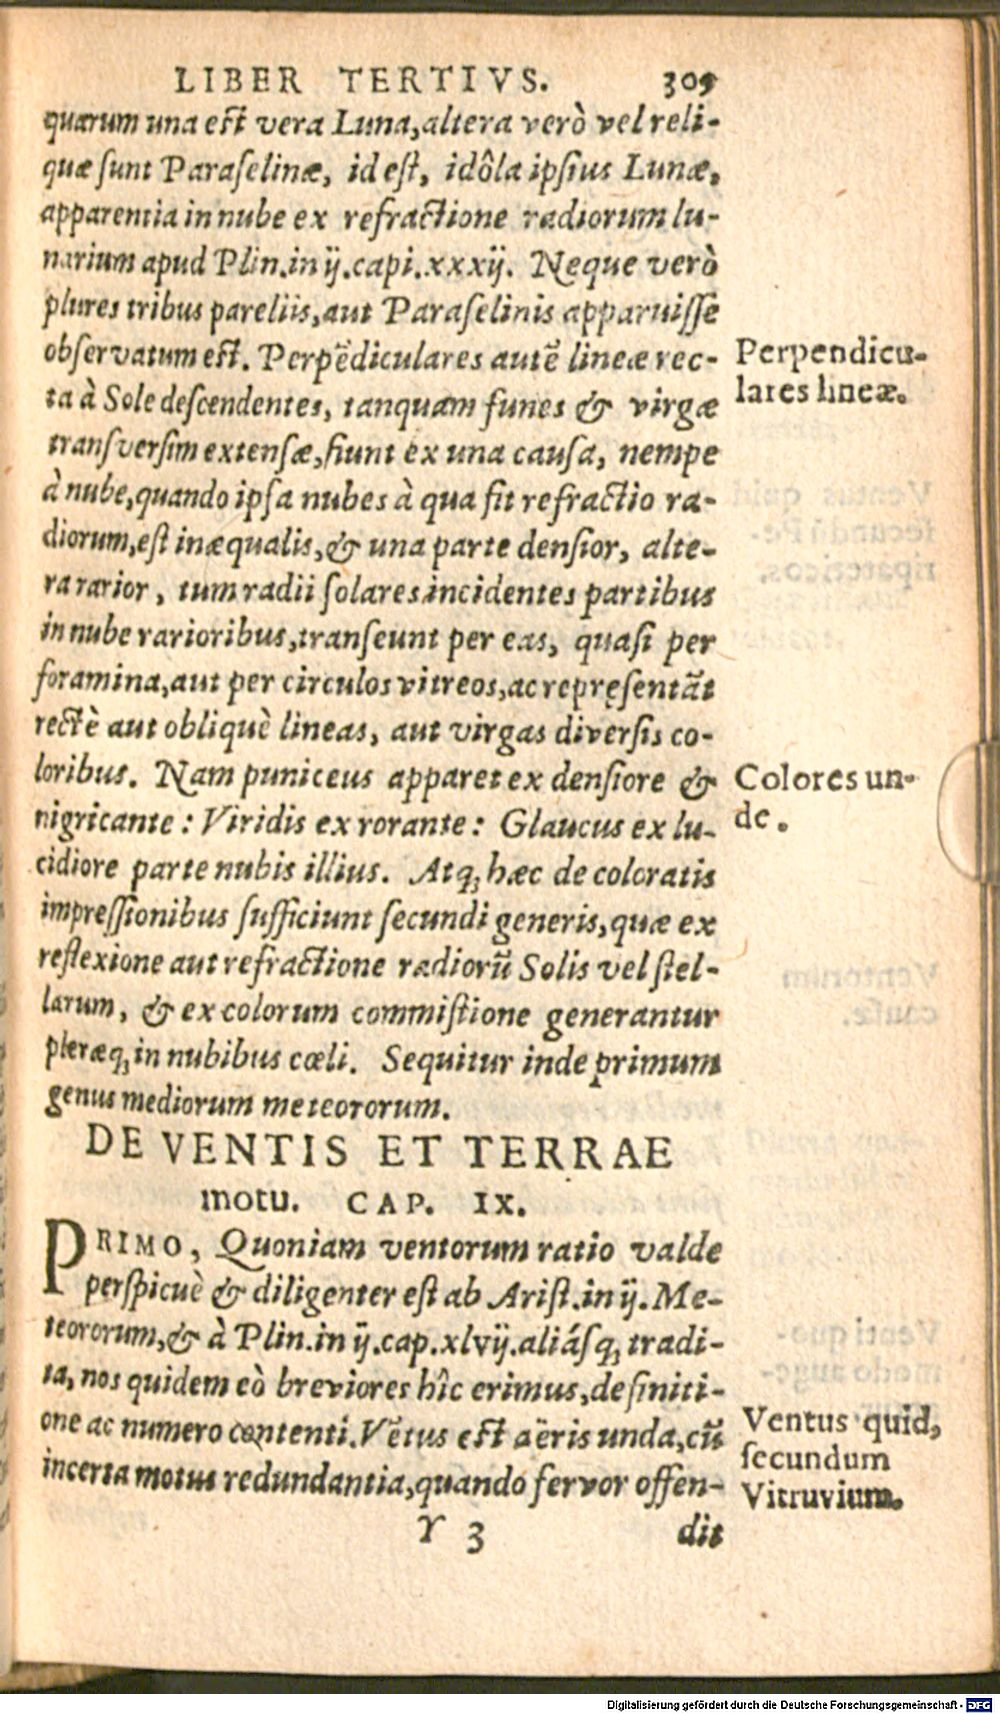 LIBER TERTIVS. 309
quarum una est vera Luna, altera verò vel reli-
quæ sunt Paraselinæ, id est, idôla ipsius Lunæ,
apparentia in nube ex refractione radiorum lu-
narium apud Plin. in ij. capi. xxxij. Neque verò
plures tribus pareliis, aut Paraselinis apparuisse
observatum est. Perpẽdiculares autẽ lineæ rec-
ta à Sole descendentes, tanquam funes & virgæ
transversim extensæ, fiunt ex una causa, nempe
à nube, quando ipsa nubes à qua fit refractio ra-
diorum, est inæqualis, & una parte densior, alte-
ra rarior, tum radii solares incidentes partibus
in nube rarioribus, transeunt per eas, quasi per
foramina, aut per circulos vitreos, ac repręsentãt
rectè aut obliquè lineas, aut virgas diversis co-
loribus. Nam puniceus apparet ex densiore &
nigricante: Viridis ex rorante: Glaucus ex lu-
cidiore parte nubis illius. Atq; hæc de coloratis
impressionibus sufficiunt secundi generis, quæ ex
reflexione aut refractione radiorũ Solis vel stel-
larum, & ex colorum commistione generantur
pleræq; in nubibus cœli. Sequitur inde primum
genus mediorum meteororum.
Perpendicu-
lares lineæ.
Colores un-
de.
DE VENTIS ET TERRAE
motu. CAP. IX.
PRIMO, Quoniam ventorum ratio valde
perspicuè & diligenter est ab Arist. in ij. Me-
teororum, & à Plin. in ij. cap. xlvij. aliásq; tradi-
ta, nos quidem eò breviores hîc erimus, definiti-
one ac numero contenti. Vẽtus est aëris unda, cũ
incerta motus redundantia, quando fervor offen-
Ventus quid,
secundum
Vitruvium.
Y 3 dit
Digitalisierung gefördert durch die Deutsche Forschungsgemeinschaft - DFG